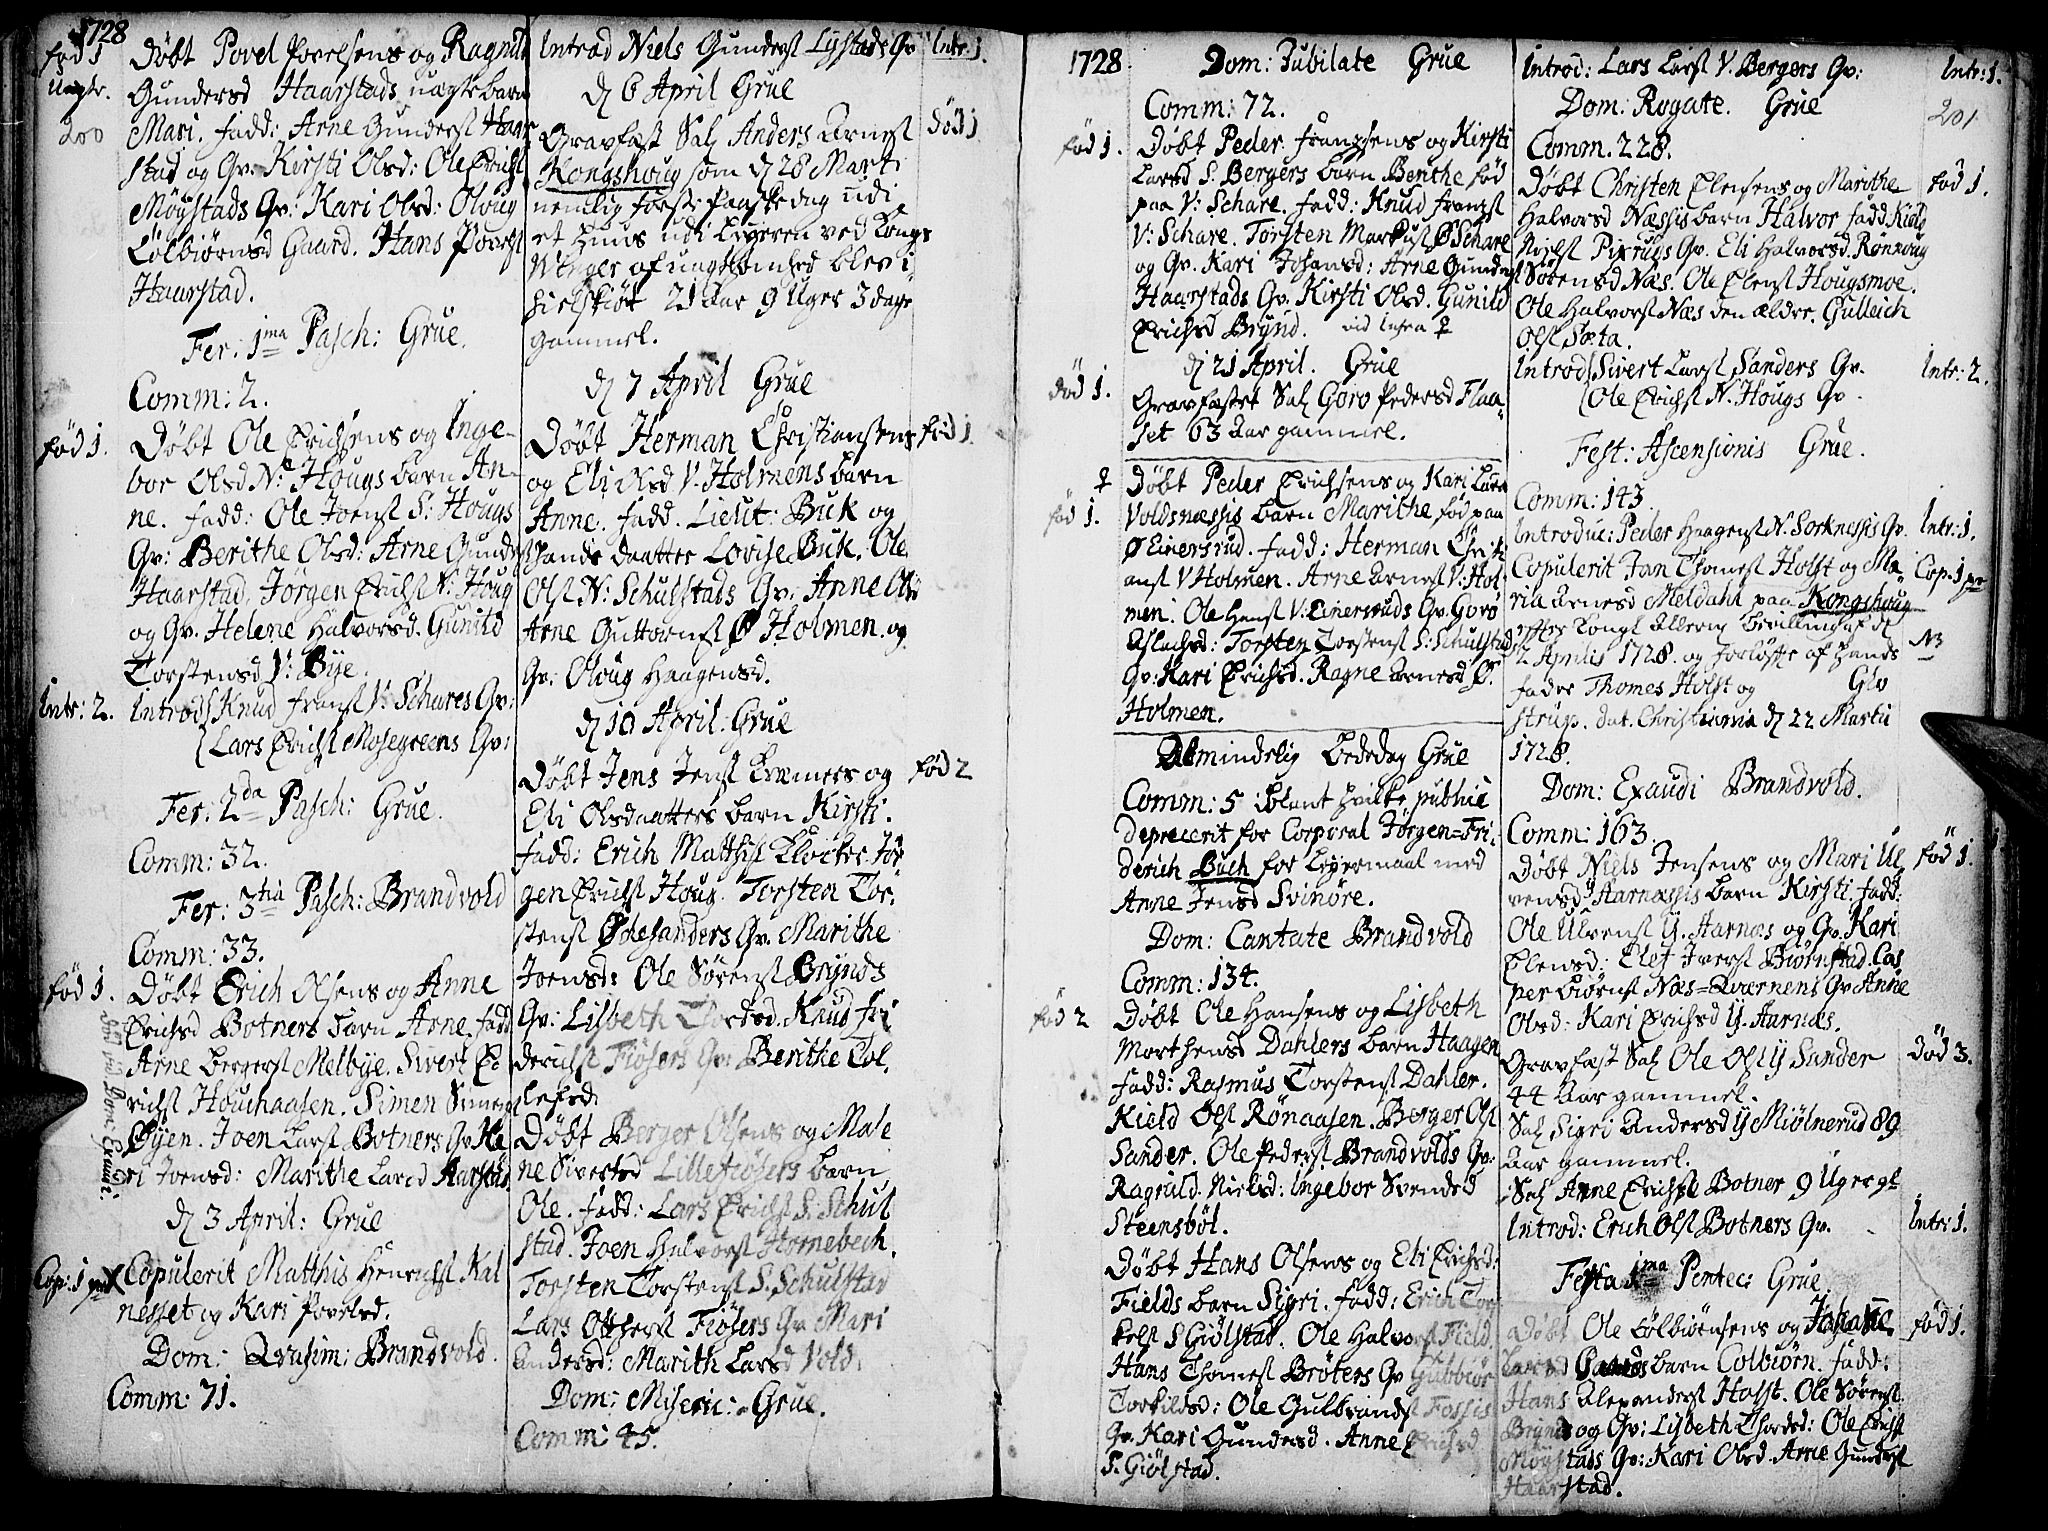 1728
fød 1
Uegte.
200
Døbt Povel Povelsens og Ragnild
Gundersd Haarstads uægte barn
Mari. fadd: Arne Gunderst Haar
stad og Gv: Kirsti Olsd: Ole Erichs
Möystads Gv: Kari Olsd: Oloug
Colbiörnsd Gaard. Hans Povelst
Haarstad.
Fer: 1ma Pasch: Grue.
Comm: 2.
fød 1.
Döbt Ole Erichsens og Inge-
bor Olsd N: Hougs barn An-
ne. fadd: Ole Joenst S: Hougs
Gv: Berithe Olsd: Arne Gunders
Haarstad. Jørgen Erichst N: Houg
og Gv. Helene Halvorsd. Gunild
Torstensd V: Bÿe.
Intr: 2.
Introd Knud Franst V: Schares Gv:
Lars Erichst Mosegreens Gv:
Fer: 2da Pasch: Grue.
Comm: 32.
Fer: 3tia Pasch: Brandvold
Comm: 33.
fød 1.
Døbt Erich Olsens og Anne
Erichsd Botners barn Arne. fadd
Arne Bergerst Melbÿe. Sivert E
richst Houchaasen. Simen Simens
Øÿen. Joen Larst Botners Gv: Ka
ri Joensd: Marithe Larsd Aarstad
Dom: Exaudi
d 3 April: Grue
Cop: 1
Copulerit Matthis Henrichst Kal
nesset og Kari Povelsd.
Dom: Qvasim: Brandvold.
Comm: 71.
Introd Niels Gunderst Lystads Gv
Intr. 1.
d 6 April Grue
Gravfæst Sal Anders Arnest
død 1
Kongshoug som d 28 Marti
nemlig første Paaskedag udi
et huus udi Leyeren ved Kongs
Winger af uagtsomhed blev i
hielskiøt 21 aar 9 Uger 3 dage
gammel.
d 7 April Grue
Döbt Herman Christiansens
fød 1
og Eli Olsd V. Holmens barn
Anne. fadd. Lieut: Buk og
hands daatter Lovise Buk. Ole
Olst N: Schulstads Gv: Anne Olsd
Arne Guttormst Ø Holmen og
Gv: Oloug Haagensd.
d 10 April: Grue
Døbt Jens Jenst Kræmers og
fød 2
Eli Olsdaatters barn Kirsti.
fadd: Erich Matthist Klocker. Jør
gen Erichst Houg. Torsten Tor-
stenst Øchesanders Gv. Marithe
Joensd: Ole Sørenst Brÿnds
Gv: Lisbeth Thordsd. Knud Fri
derichst Fiösers Gv: Berithe Tol
lefsd.
Döbt Berger Olsens og Male
ne Sivertsd Lillefiösers barn
Ole. fadd: Lars Erichst S: Schul
stad. Joen Halvorst Hornebech.
Torsten Torstenst S. Schulstad
Lars Otthers Fiösers Gv Mari
Andersd: Marith Larsd Vold.
Dom: Miseric: Grue.
Comm: 45.
1728
Dom: Jubilate Grue
Comm: 72.
fød 1.
Døbt Peder Franssens og Kirsti
Larsd S. Bergers barn Berithe fød
paa V: Schare. fadd: Knud Franst
V: Schare. Torsten Markust Ø Schare
og Gv. Kari Johansd: Arne Gunders
Haarstads Gv. Kirsti Olsd. Gunild
Erichsd Brÿnd. vid infra ♀
d 21 April. Grue
død 1.
Gravfæstet Sal Goro Pedersd Flaa-
set 63 aar gammel.
♀
fød 1.
Döbt Peder Erichsens og Kari Lars
Voldsnæssis barn Marithe fød paa
Ø Einersrud. fadd: Herman Christi
anst V Holmen. Arne Arnest V: Hol-
men. Ole Hanst V: Einersruds Gv. Goro
Aslachsd: Torsten Torstenst S: Schulstad
Gv: Kari Erichsd. Ragne Arnesd Ø.
Holmen.
Almindelig Bededag Grue
Comm: 5 iblant hvilke public
deprecerit for Corporal Jørgen=Fri-
derich Buch for Leyermaal med
Anne Jensd Svinöre.
Dom: Cantate Brandvold
Comm: 134.
fød 2
Døbt Ole Hansens og Lisbeth
Morthensd Dahlers barn Haagen
fadd: Rasmus Torstenst Dahler.
Kield Olst Rönaasen. Berger Olst
Sander. Ole Pederst Brandvolds Gv:
Ragnild Nielsd: Ingebor Svendsd
Steensböl.
Döbt Hans Olsens og Eli Erichsd:
Fields barn Sigri. fadd: Erich Tor
kels S Giölstad. Ole Halvorst Field.
Hans Thomest Bröters Gv Gubbiör
Torkildsd: Ole Gulbrandst Fossis
Gv. Kari Gundersd. Anne Erichsd
S. Giölstad.
Introd: Lars Larst V. Bergers Gv:
Intr: 1.
Dom. Rogate. Grue
201
Comm. 228.
Døbt Christen Elensens og Marithe
fød 1.
Halvorsd Næssis barn Halvor fadd. Kield
Nielst Pixruds Gv. Eli Halvorsd. Rönnoug
Sörensd Næs. Ole Elenst Hougsmoe.
Ole Halvorst Næs den ældre. Gulleich
Olst Sæta.
Introd Sivert Larst Sanders Gv.
Intr: 2.
Ole Erichst N. Hougs Gv.
Fest: Ascensionis Grue.
Comm: 143.
Introduc: Peder Haagenst N. Sorknessis Gv.
Intr: 1.
Copulerit Jan Thomest Holst og Ma-
Cop: 1
ria Arnesd Meldahl paa Kongshoug
efter Kongl Allern Bevilling af d
12 Aprilis 1728. og forløfte af hands
NB
fader Thomes Holst og Glo
strup. dat. Christiania d 22 Martii
1728.
Dom: Exaudi Brandvold.
Comm: 163.
Döbt Niels Jensens og Mari Ul
fød 1.
vensd Aarnæssis barn Kirsti. fadd:
Ole Ulvenst Y. Aarnæs og Gv. Kari
Elensd: Elef Iverst Biørnstad. Cas
per Biörnst Næs=Qværnens Gv Anne
Olsd: Kari Erichsd Y. Aarnæs.
Gravfæst Sal Ole Olst Y Sander
Død 3.
44 Aar gammel.
Sal Sigri Andersd Y Miölnerud 89
Aar gammel.
Sal Arne Erichst Botner 9 Uger gl
Introd: Erich Olst Botners Gv.
Intr: 1.
Festa 1ma Pentec: Grue
Døbt Ole Colbiörnsens og Johanne
fød 1.
Larsd Gaards barn Colbiörn. fadd:
Hans Alexanderst Holst. Ole Sørenst
Brÿnds og Gv: Lisbeth Thordsd: Ole Erichst
Möystads Gv: Kari Olsd. Arne Gunderst
Haarstad.